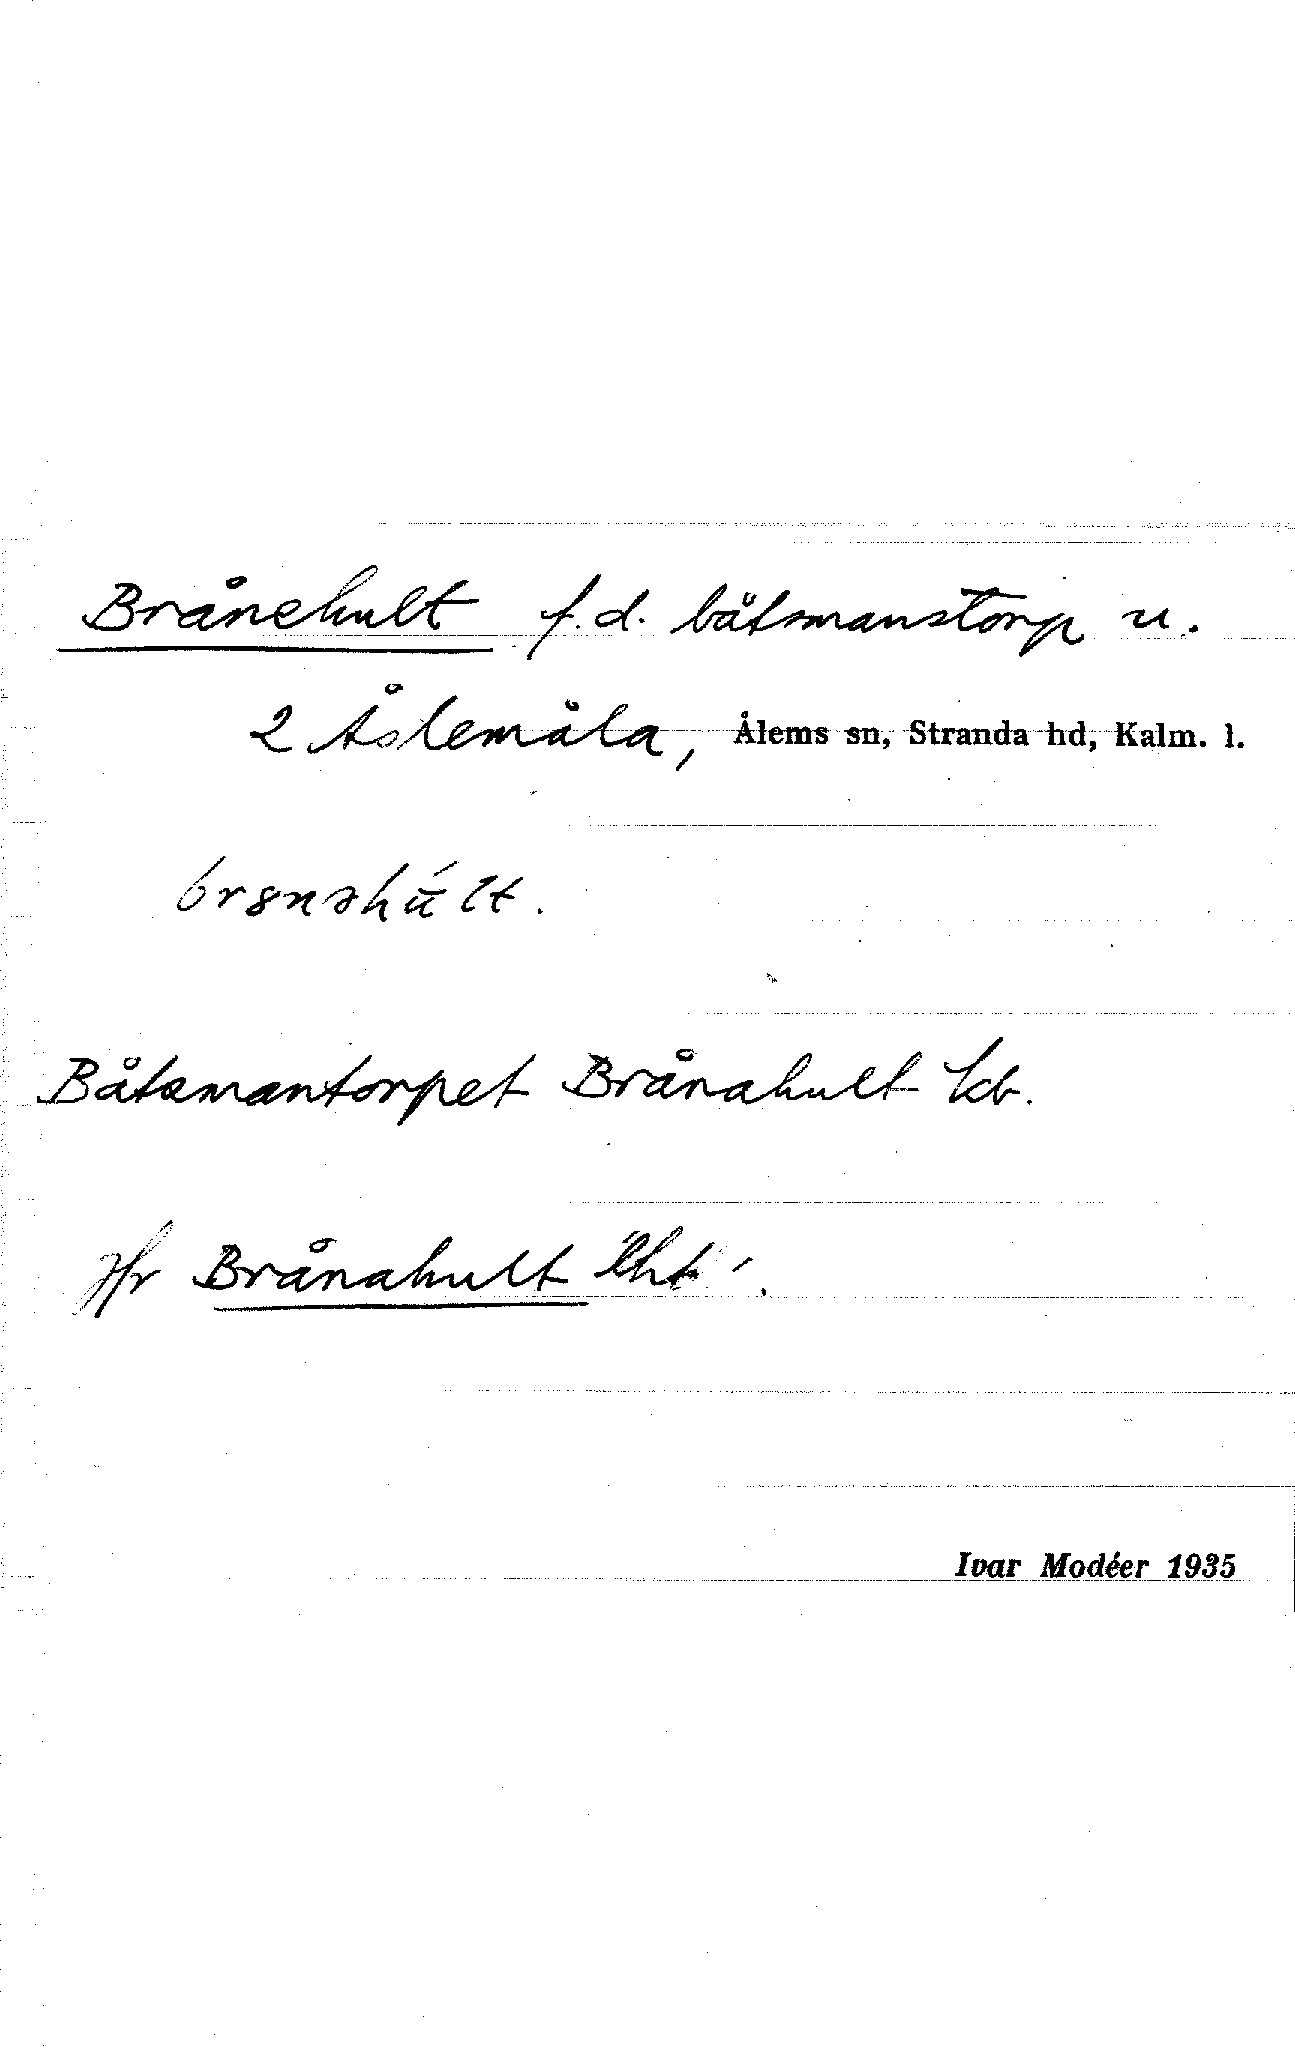 Brånehult f.d. båtsmanstorp u.
2 Åslemåla, Ålems sn, Stranda hd, Kalm. l.
Båtsmantorpet Brånahult kb.
Jfr Brånahult
Ivar Modéer 1935